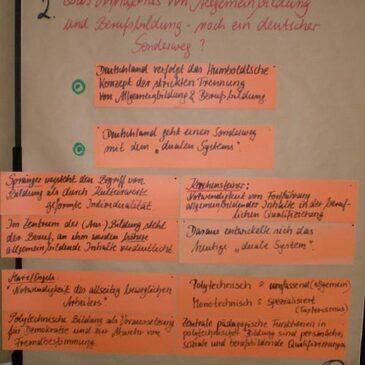 2. Das Verhältnis von Allgemeinbildung
und Berufsbildung - noch ein deutscher
Sonderweg?
Deutschland verfolgt das Humboldtsche
Konzept der strikten Trennung
von Allgemeinbildung & Berufsbildung
Deutschland geht einen Sonderweg
mit dem "dualen System"
Spranger versteht den Begriff von
Bildung als durch Kulturwerte
geformte Individualität
Im Zentrum des (Aus-)Bildung steht
der Beruf, an ihm werden
allgemeinbildende Inhalte verdeutlicht
Kerschensteiner:
Notwendigkeit von Fortführung
allgemeinbildender Inhalte in der beruf-
lichen Qualifizierung
Daraus entwickelte sich das
heutige "duale System".
Marx/Engels:
"Notwendigkeit des allseitig beweglichen
Arbeiters"
Polytechnische Bildung als Voraussetzung
für Demokratie und zur Abwehr von
Fremdbestimmung
Polytechnisch = umfassend (allgemein)
Monotechnisch = spezialisiert
(Taylorismus)
Zentrale pädagogische Funktionen in
polytechnischer Bildung sind persönliche,
soziale und berufsbildende Qualifizierungen